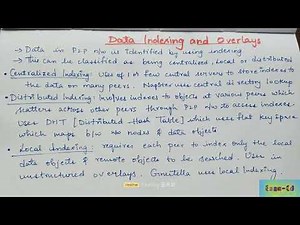 Data Indexing and Overlays
→ Data in P2P n/w is identified by using indexing
→ This can be classified as being centralized, local or distributed
• Centralized Indexing: Use of 1 or few central servers to store indexes to
the data on many peers. Napster uses central directory lookup
• Distributed Indexing: Involves indexes to objects at various peers which
scatters across other peers through P2P n/w to access indexes.
Uses DHT [Distributed Hash Table] which uses flat key space
which maps b/w n/w nodes & data objects
• Local Indexing: requires each peer to index only the local
data objects & remote objects to be searched. Use in
unstructured overlays. Gnutella uses local Indexing.
Exam-Ed